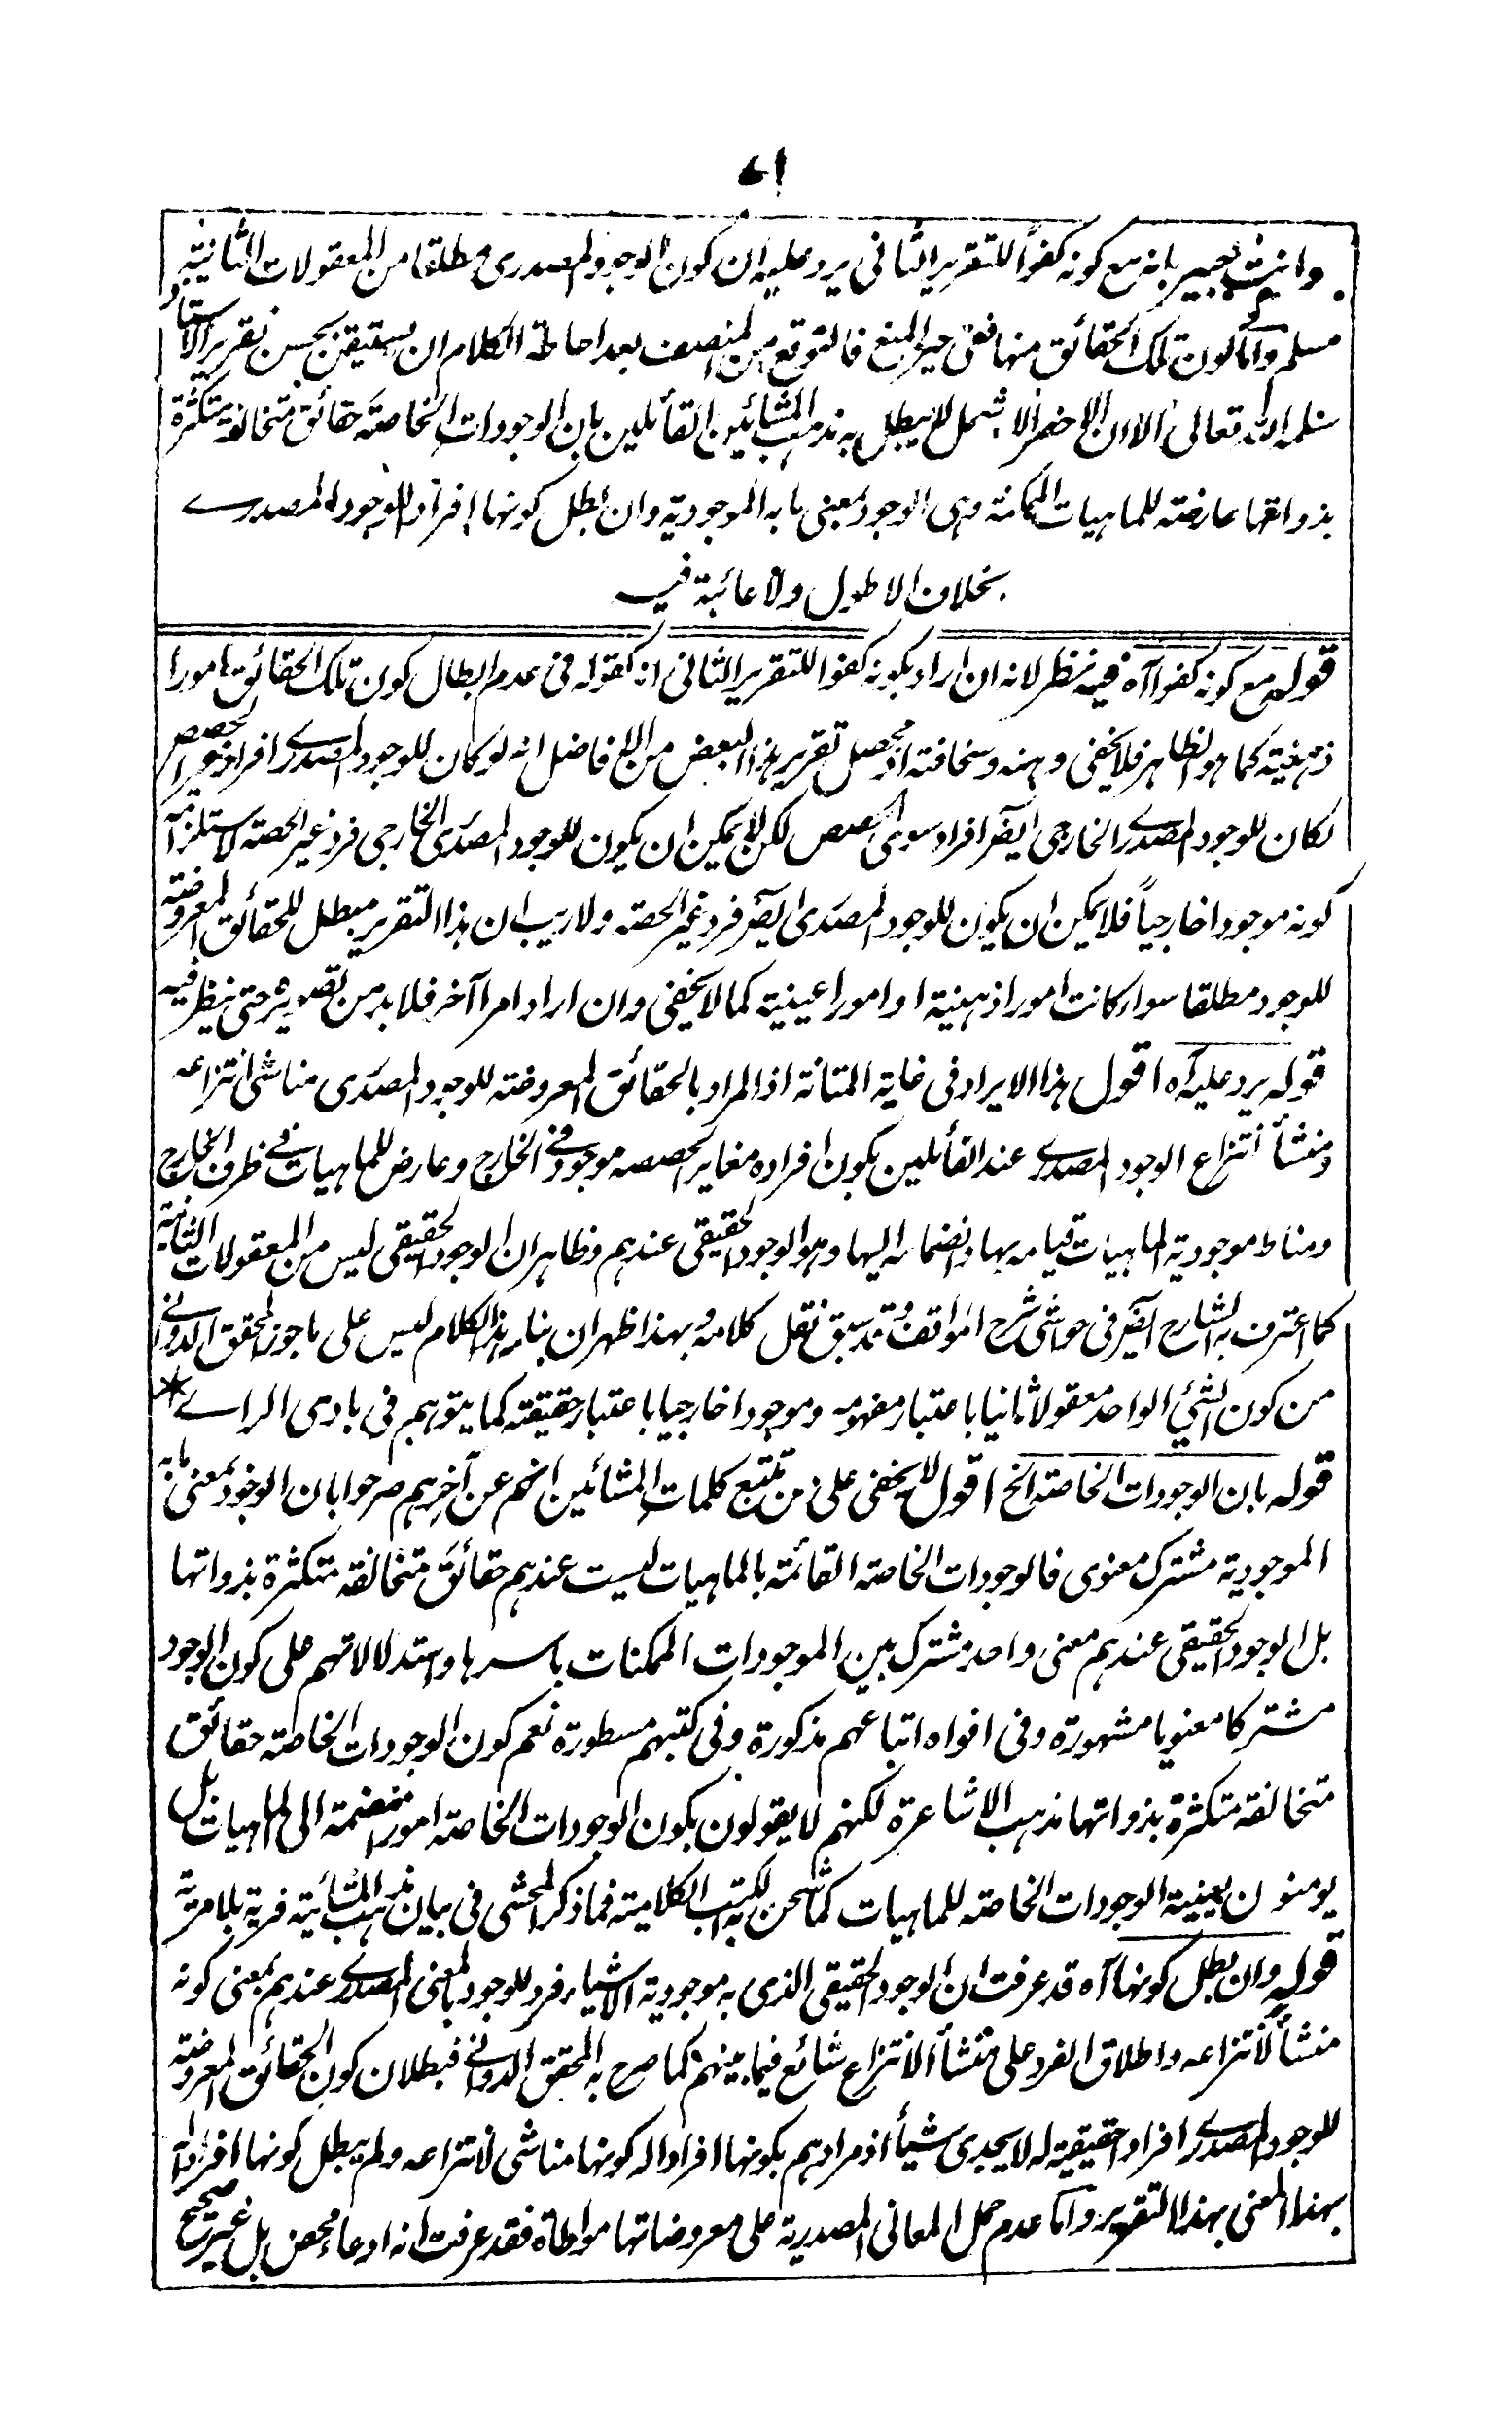 ۷۱
وانت خبير بانه مع كونه كفوًا للتقرير الثاني يرد عليه ان كون الوجود المصدرى مطلقا من المعقولات الثانية
مسلم واما كون تلك الحقائق منها ففى حيز المنع فالمتوقع من المنصف بعد احاطة الكلام ان يستيقن بحسن تقرير الاستاذ
سلمه الله تعالى الا ان الاخصر الاشمل لا يبطل به مذهب المشائين القائلين بان الوجودات الخاصة حقائق متخالفة متكثرة
بذواتها عارضة للماهيات الممكنة وهى الوجود بمعنى ما به الموجودية وان بطل كونها افرادا للوجود المصدرے
بخلاف الاطول ولا عائبة فيه
قوله مع كونه كفوا آه فيه نظر لانه ان اراد بكونه كفوا للتقرير الثانى انه كفو له فى عدم ابطال كون تلك الحقائق امورا
ذهنية كما هو الظاهر فلا يخفى وهنه وسخافته اذ محصل تقرير هذا البعض من الافاضل انه لو كان للوجود المصدرے افراد غير الحصص
لكان للوجود المصدرے الخارجى ايضا افراد سوى الحصص لكن لا يمكن ان يكون للوجود المصدرى الخارجى فرد غير الحصة لاستلزامه
كونه موجودا خارجياً فلا يمكن ان يكون للوجود المصدرى ايضا فرد غير الحصة ولا ريب ان هذا التقرير مبطل للحقائق المعروضة
للوجود مطلقا سواء كانت امورا ذهنية او امورا عينية كما لا يخفى وان اراد امرا آخر فلا بد من تصويره حتى ينظر فيه
قوله يرد عليه آه اقول هذا الايراد فى غاية المتانة اذ المراد بالحقائق المعروضة للوجود المصدرى مناشى انتزاعه
ومنشأ انتزاع الوجود المصدرے عند القائلين بكون افراده مغايرة لحصصه موجود فى الخارج وعارض للماهيات فے ظرف الخارج
ومناط موجودية الماهيات قيامه بها وانضمامه اليها وهو الوجود الحقيقى عندهم وظاهر ان الوجود الحقيقى ليس من المعقولات الثانية
كما اعترف به الشارح ايضا فى حواشى شرح المواقف وقد سبق نقل كلامه وبهذا ظهر ان بناء هذا الكلام ليس على ما جوز المحقق الدوانے
من كون الشئ الواحد معقولا ثانيا باعتبار مفهومه وموجودا خارجيا باعتبار حقيقته كما يتوهم فى بادى الراے *
قوله بان الوجودات الخاصة الخ اقول لا يخفى على من تتبع كلمات المشائين انهم عن آخرهم صرحوا بان الوجود بمعنى ما به
الموجودية مشترك معنوى فالوجودات الخاصة القائمة بالماهيات ليست عندهم حقائق متخالفة متكثرة بذواتها
بل الوجود الحقيقى عندهم معنى واحد مشترك بين الموجودات الممكنات باسرها واستدلالاتهم على كون الوجود
مشتركا معنويا مشهورة وفى افواه اتباعهم مذكورة وفى كتبهم مسطورة نعم كون الوجودات الخاصة حقائق
متخالفة متكثرة بذواتها مذهب الاشاعرة لكنهم لا يقولون بكون الوجودات الخاصة امورا منضمة الى الماهيات بل
يومنون بعينية الوجودات الخاصة للماهيات كما شحن به الكتب الكلامية فما ذكر المحشى فى بيان مذهب المشائية فرية بلا مرية
قوله وان بطل كونها آه قد عرفت ان الوجود الحقيقى الذى به موجودية الاشياء فرد للوجود بالمعنى المصدرے عندهم بمعنى كونه
منشأ لانتزاعه واطلاق الفرد على منشأ الانتزاع شائع فيما بينهم كما صرح به المحقق الدوانے فبطلان كون الحقائق المعروضة
للوجود المصدرے افرادا حقيقية له لا يجدى شيأ اذ مرادهم بكونها افرادا له كونها مناشى لانتزاعه ولم يبطل كونها افرادا له
بهذا المعنى بهذا التقرير واما عدم حمل المعانى المصدرية على معروضاتها مواطاة فقد عرفت انه ادعاء محض بل غير صحيح